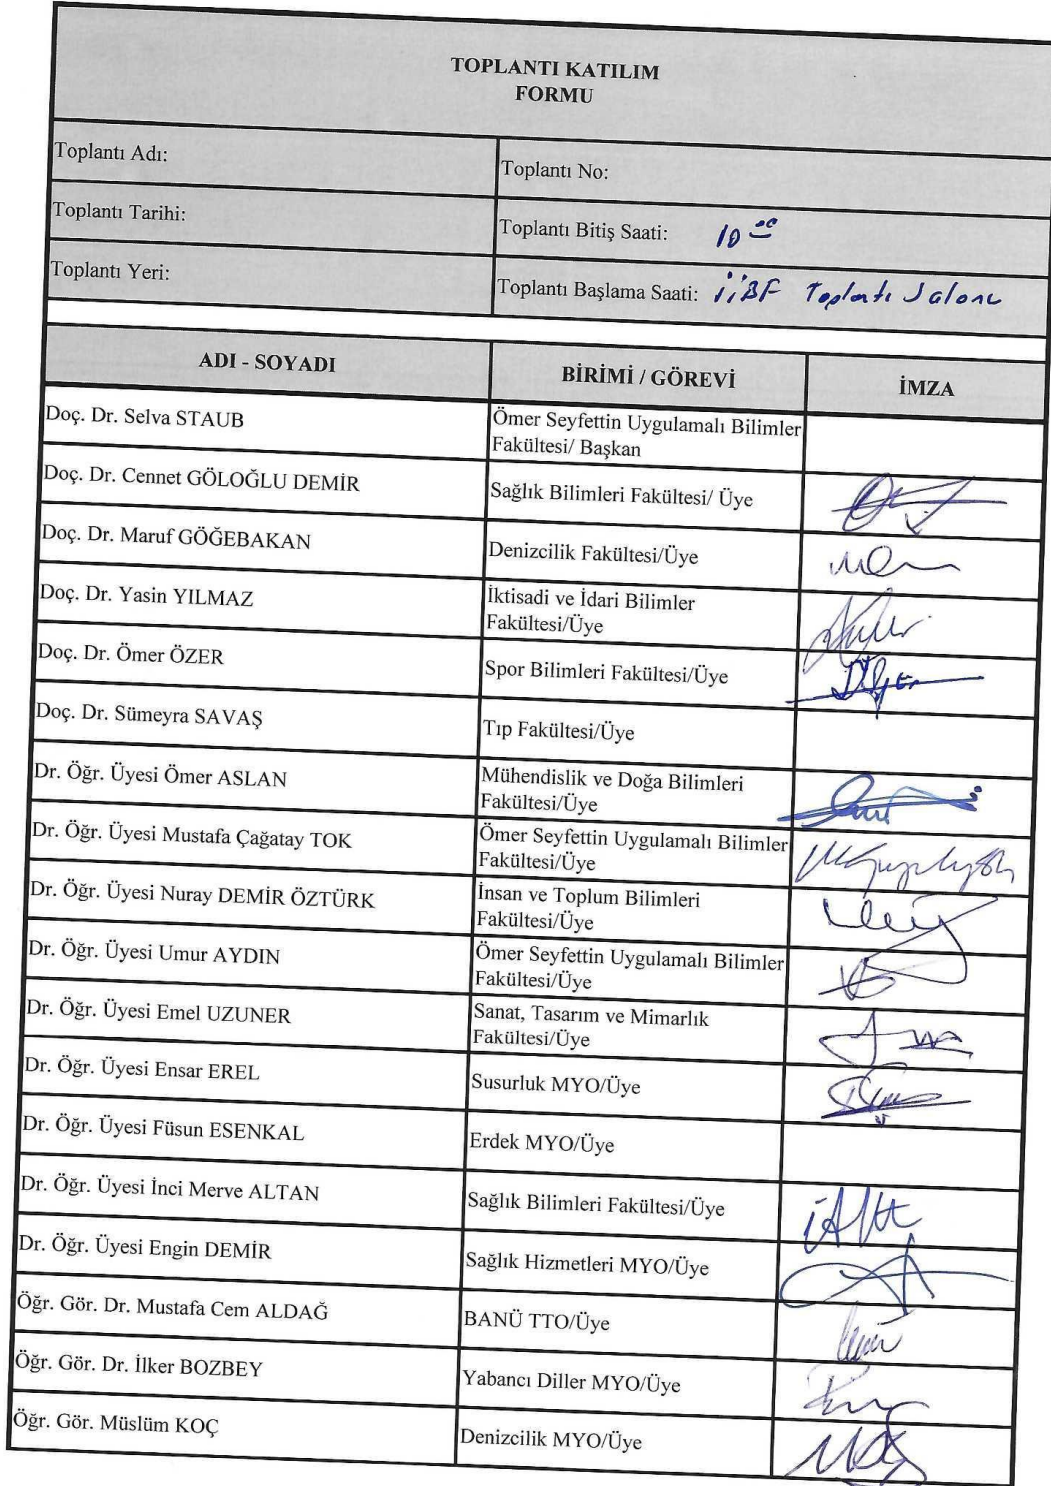 TOPLANTI KATILIM
FORMU
Toplantı Adı:
Toplantı No:
Toplantı Tarihi:
Toplantı Bitiş Saati: 10 00
Toplantı Yeri:
Toplantı Başlama Saati: İİBF Toplantı Salonu
ADI - SOYADI
BİRİMİ / GÖREVİ
İMZA
Doç. Dr. Selva STAUB
Ömer Seyfettin Uygulamalı Bilimler
Fakültesi/ Başkan
Doç. Dr. Cennet GÖLOĞLU DEMİR
Sağlık Bilimleri Fakültesi/ Üye
Doç. Dr. Maruf GÖĞEBAKAN
Denizcilik Fakültesi/Üye
Doç. Dr. Yasin YILMAZ
İktisadi ve İdari Bilimler
Fakültesi/Üye
Doç. Dr. Ömer ÖZER
Spor Bilimleri Fakültesi/Üye
Doç. Dr. Sümeyra SAVAŞ
Tıp Fakültesi/Üye
Dr. Öğr. Üyesi Ömer ASLAN
Mühendislik ve Doğa Bilimleri
Fakültesi/Üye
Dr. Öğr. Üyesi Mustafa Çağatay TOK
Ömer Seyfettin Uygulamalı Bilimler
Fakültesi/Üye
Dr. Öğr. Üyesi Nuray DEMİR ÖZTÜRK
İnsan ve Toplum Bilimleri
Fakültesi/Üye
Dr. Öğr. Üyesi Umur AYDIN
Ömer Seyfettin Uygulamalı Bilimler
Fakültesi/Üye
Dr. Öğr. Üyesi Emel UZUNER
Sanat, Tasarım ve Mimarlık
Fakültesi/Üye
Dr. Öğr. Üyesi Ensar EREL
Susurluk MYO/Üye
Dr. Öğr. Üyesi Füsun ESENKAL
Erdek MYO/Üye
Dr. Öğr. Üyesi İnci Merve ALTAN
Sağlık Bilimleri Fakültesi/Üye
Dr. Öğr. Üyesi Engin DEMİR
Sağlık Hizmetleri MYO/Üye
Öğr. Gör. Dr. Mustafa Cem ALDAĞ
BANÜ TTO/Üye
Öğr. Gör. Dr. İlker BOZBEY
Yabancı Diller MYO/Üye
Öğr. Gör. Müslüm KOÇ
Denizcilik MYO/Üye